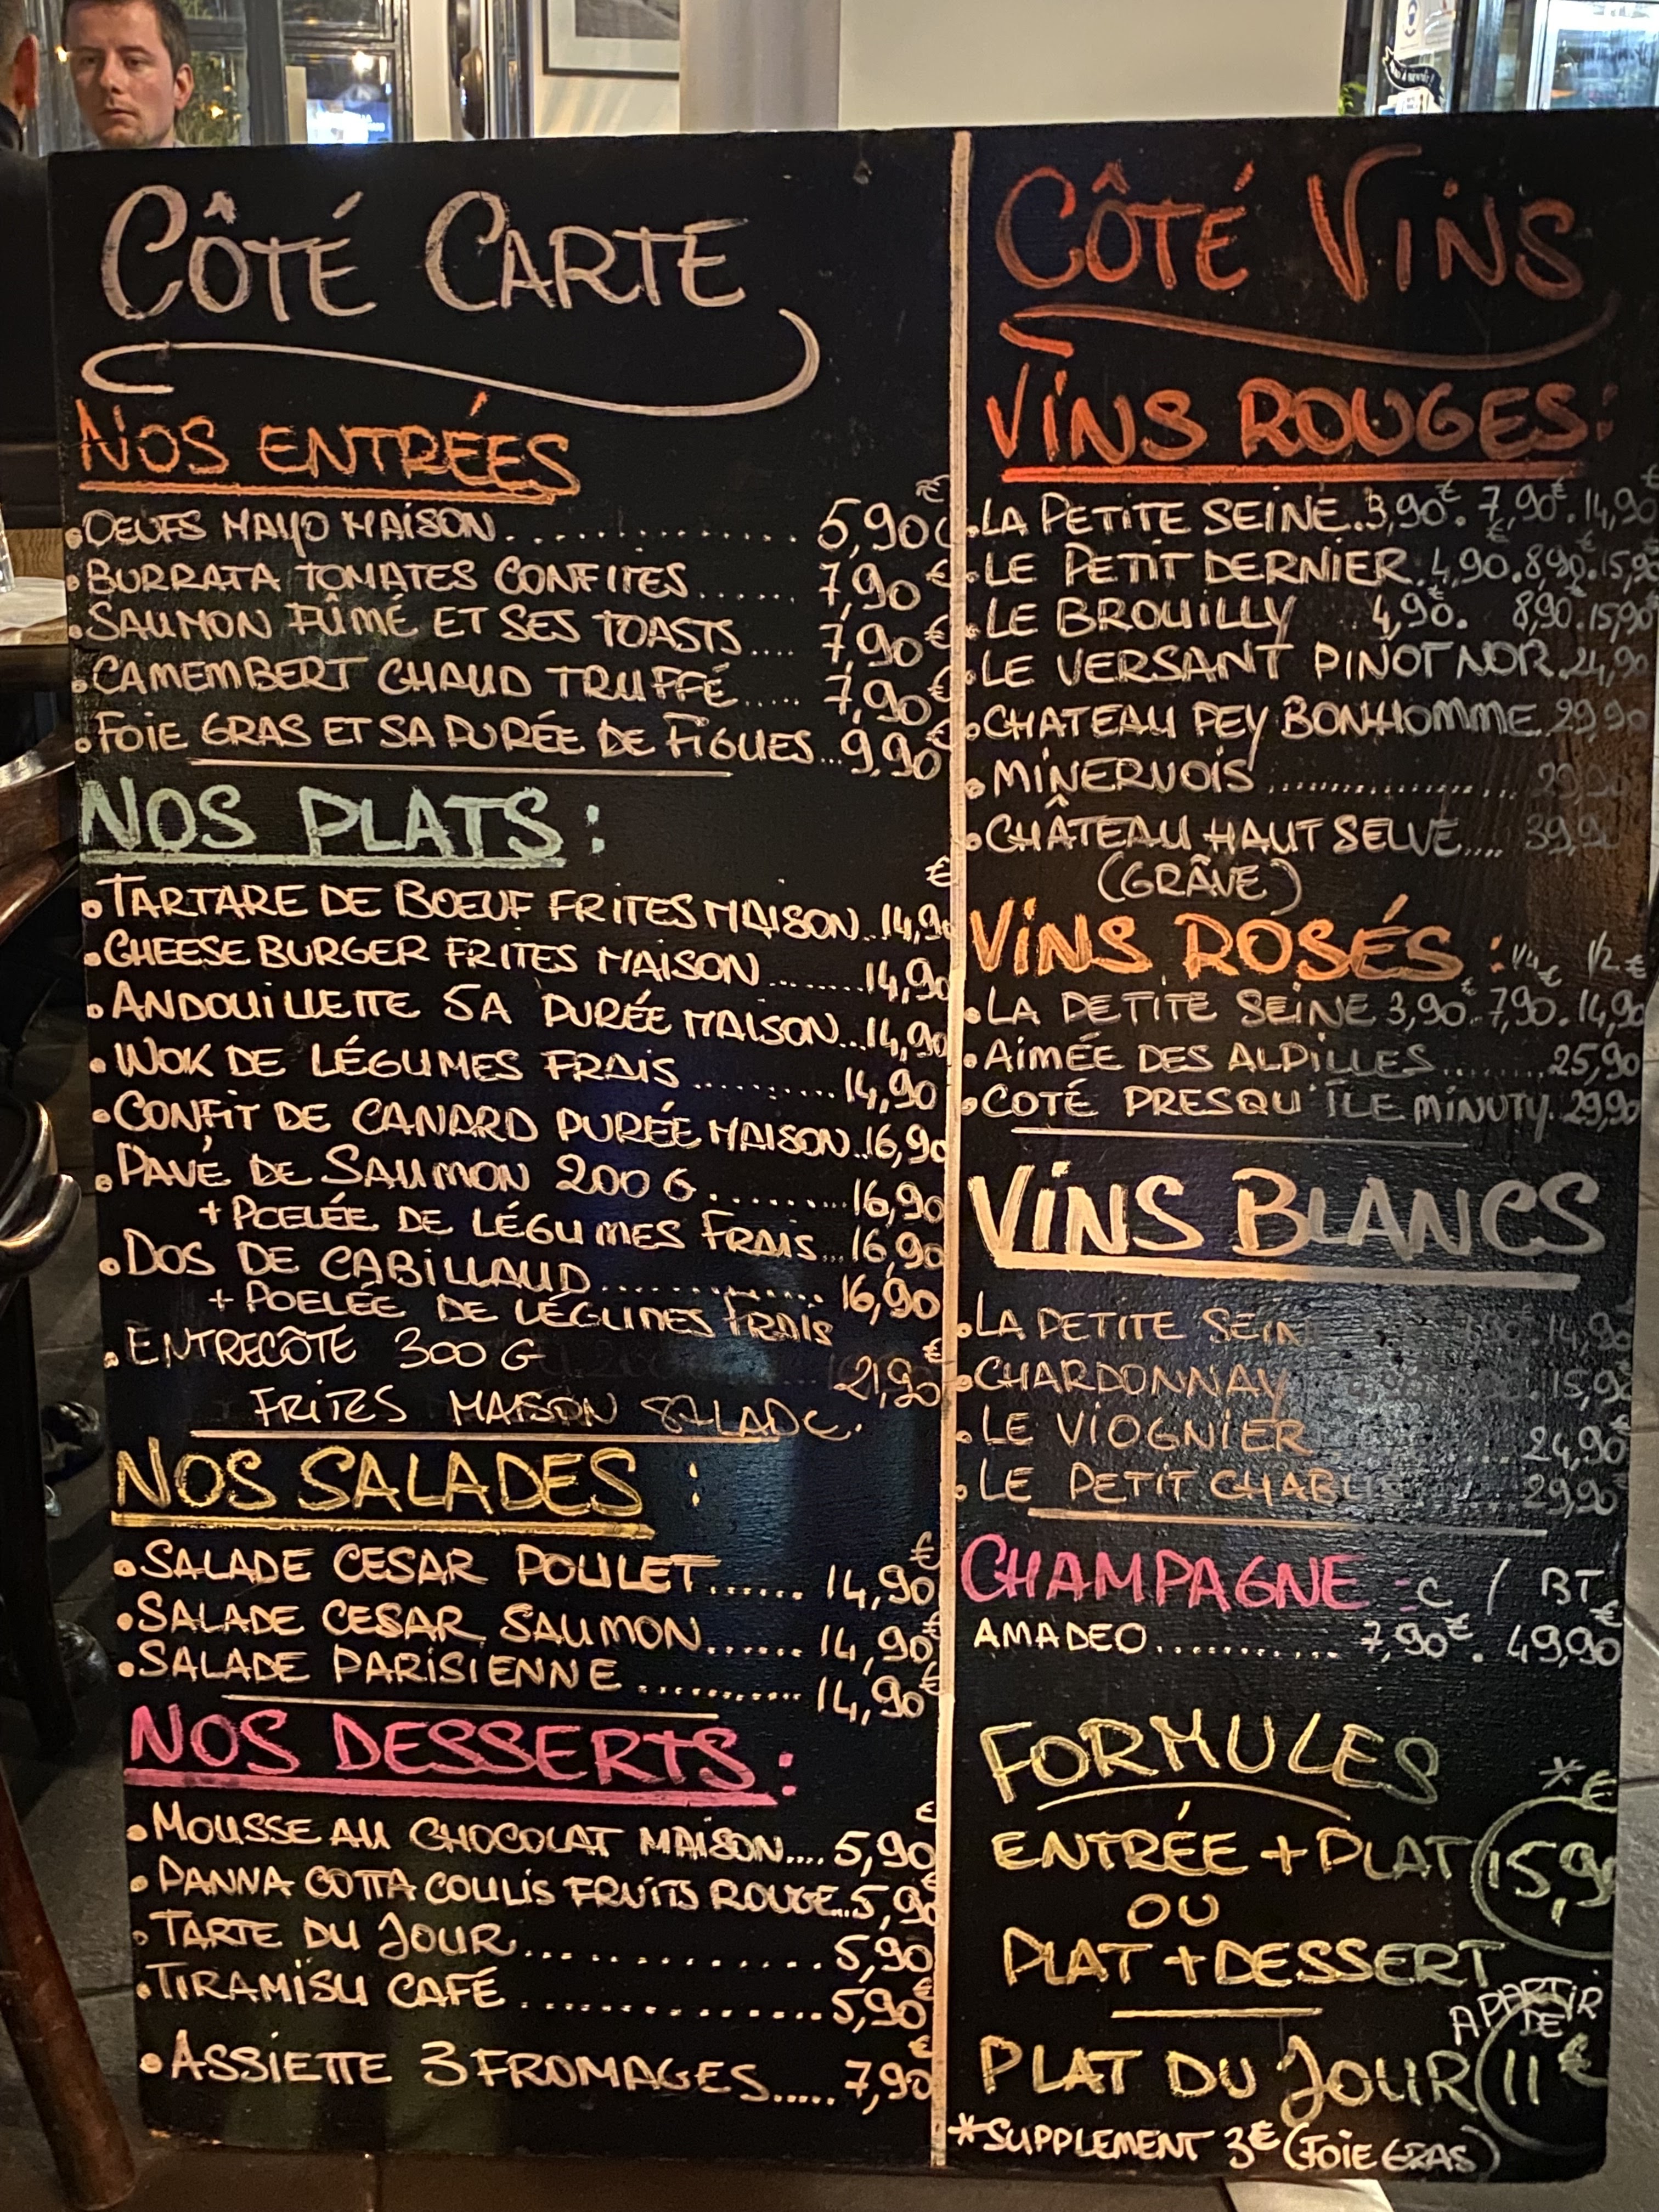 CÔTÉ CARTE
NOS ENTRÉES
OEUFS MAYO MAISON............. 5,90€
BURRATA TOMATES CONFITES...... 7,90€
SAUMON FÛMÉ ET SES TOASTS.... 7,90€
CAMEMBERT CHAUD TRUFFÉ..... 7,90€
FOIE GRAS ET SA PURÉE DE FIGUES...9,90€
NOS PLATS:
TARTARE DE BOEUF FRITES MAISON..14,90€
CHEESE BURGER FRITES MAISON........14,90
ANDOUILLETTE 5A PURÉE MAISON...14,90
WOK DE LÉGUMES FRAIS............14,90
CONFIT DE CANARD PURÉE MAISON..16,90
PAVÉ DE SAUMON 200G.........16,90
+ POELÉE DE LÉGUMES FRAIS...16,90
DOS DE CABILLAUD............. 16,90
+ POELÉE DE LÉGUMES FRAIS
ENTRECÔTE 300 G 21,90€
FRITES MAISON SALADE.
NOS SALADES :
SALADE CESAR POULET...... 14,90€
SALADE CESAR SAUMON...... 14,90€
SALADE PARISIENNE .......... 14,90€
NOS DESSERTS:
MOUSSE AU CHOCOLAT MAISON.... 5,90€
PANNA COTTA COULIS FRUITS ROUGE...5,90€
TARTE DU JOUR............. 5,90
TIRAMISU CAFÉ ..............5,90€
ASSIETTE 3 FROMAGES..... 7,90€
CÔTÉ VINS
VINS ROUGES:
LA PETITE SEINE..3,90€. 7,90€.14,90€
LE PETIT DERNIER.4,90€.8,90€.15,90€
LE BROUILLY 4,90. 8,90€.15,90€
LE VERSANT PINOT NOR.24,90
CHATEAU PEY BONHOMME 29,90
MINERVOIS ................. 29,90
CHÂTEAU HAUT SELVE.... 39,90
(GRÂVE)
VINS ROSÉS : 1/4 1/2
LA PETITE SEINE 3,90€.7,90€.14,90€
AIMÉE DES ALPILLES.......25,90
COTÉ PRESQU'ÎLE MINUTY.29,90
VINS BLANCS
LA PETITE 14,90
CHARDONNAY 15,90
LE VIOGNIER 24,90€
LE PETIT 29,90
CHAMPAGNE : C / BT
AMADEO........... 7,90€ . 49,90€
FORMULES
*€
ENTRÉE + PLAT 15,90
OU
PLAT + DESSERT
A PARTIR
DE
PLAT DU JOUR 11€
*SUPPLEMENT 3€ (FOIE GRAS)